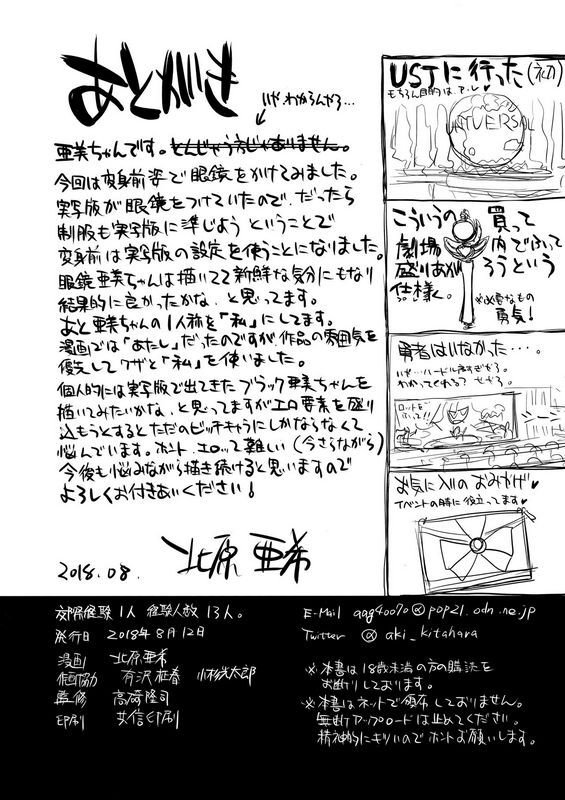 あとがき
いや、わからんやろ…
亜美ちゃんです。とんじゃうろじゃありません。
今回は変身前姿で眼鏡をかけてみました。
実写版が眼鏡をつけていたので、だったら
制服も実写版に準じよう ということで
変身前は実写版の設定を使うことになりました。
眼鏡亜美ちゃんは描いてて新鮮な気分にもなり
結果的に良かったかな、と思ってます。
あと亜美ちゃんの1人称を「私」にしてます。
漫画では「あたし」だったのですが、作品の雰囲気を
優先してワザと「私」を使いました。
個人的には実写版で出てきたブラック亜美ちゃんを
描いてみたいかな、と思ってますがエロ要素を盛り
込もうとするとただのビッチキャラにしかならなくて
悩んでいます。ホント、エロって難しい(今さらながら)
今後も悩みながら描き続けると思いますので
よろしくお付きあいください!
2018.08.
北原亜希
USJに行った(初)
もちろん目的は
UNIVERSAL
こういうの買って
劇場内でふって
盛りあがろうという
仕様らしく。
※必要なもの
勇気!
勇者はいなかった・・・。
いや…ハードル高すぎだろ。
わかってくれる?
ロッドを
シーン
お気に入りのおみやげ♥
イベントの時に役立ってます♥
交際経験1人 経験人数13人。
発行日 2018年8月12日
漫画 北原亜希
作画協力 有沢 小林洸太郎
監修 高崎隆司
印刷 共信印刷
E-Mail aag40070@pop21.odn.ne.jp
Twitter @aki_kitahara
※本書は18歳未満の方の購読を
お断りしております。
※本書はネットで頒布しておりません。
無断アップロードは止めてください。
精神的にキツいのでホントお願いします。